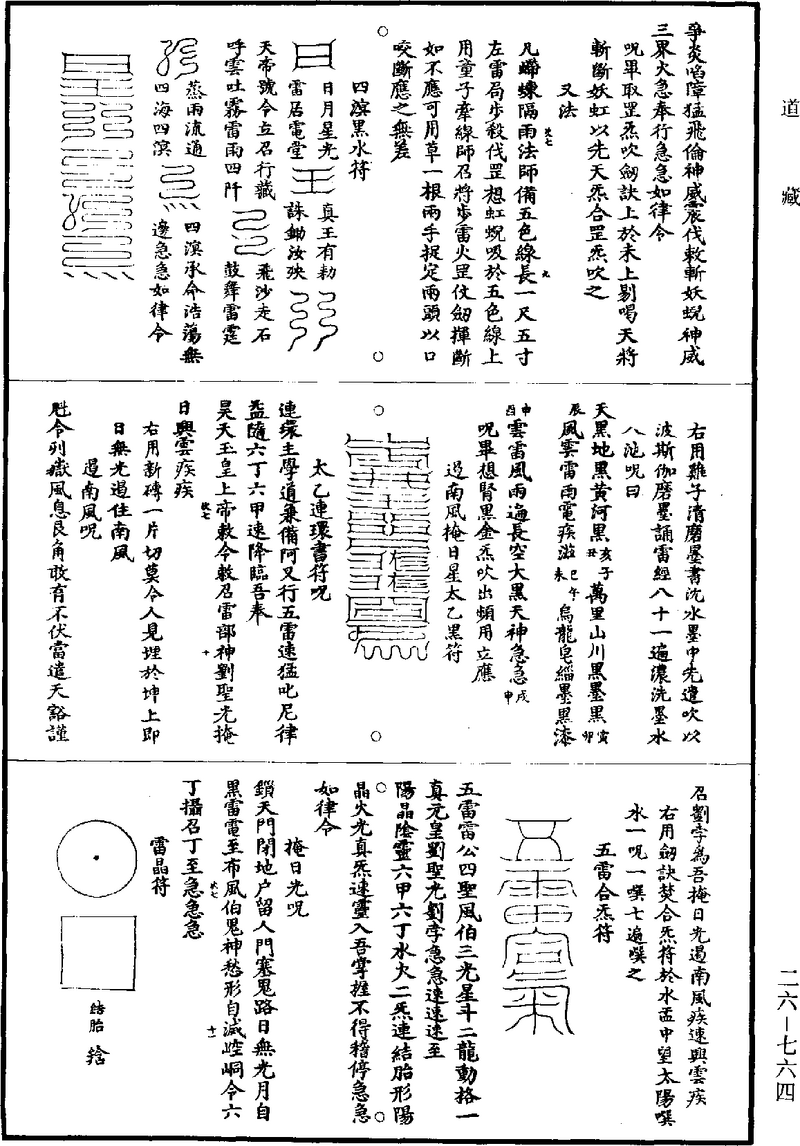 道藏
爭炎焰障猛飛倫神威震伐敕斬妖蜺神威
三界火急奉行急急如律令
呪畢取罡炁吹劒訣上於未上剔喝天將
斬斷妖虹以先天炁合罡炁吹之
又法
凡螮蝀隔雨法師備五色線長一尺五寸
左雷局步殺伐罡想虹蜺吸於五色線上
用童子牽線師召將步雷火罡仗劒揮斷
如不應可用草一根兩手捉定兩頭以口
咬斷應之無差
四溟黑水符
日月星光
雷居電堂
真王有勅
誅鋤汝殃
天帝號令立召行藏
呼雲吐霧雷雨四阡
飛沙走石
鼓舞雷霆
蒸雨流通
四海四溟
四溟承命浩蕩無
邊急急如律令
右用雞子清磨墨書沈水墨中先遣吹以
波斯伽磨墨誦雷經八十一遍濃洗墨水
八沲呪曰
天黑地黑黃河黑亥子丑萬里山川黑墨黑寅卯
辰風雲雷雨電疾滋巳午未烏龍皂緇墨黑漆
申酉雲雷風雨遍長空大黑天神急急戌申
呪畢想腎黑金炁吹出頻用立應
遏南風掩日星太乙黑符
太乙連環書符呪
連環主學道兼備阿又行五雷速猛叱尼律
盃隨六丁六甲速降臨吾奉
昊天玉皇上帝敕令敕召雷部神劉聖光掩
日興雲疾疾
右用新磚一片切莫令人見埋於坤上即
日無光遏住南風
遏南風呪
魁令列嶽風息艮角敢有不伏當遣天谿謹
召劉孛為吾掩日光遏南風疾速興雲疾
右用劒訣焚合炁符於水盂中望太陽噀
水一呪一噀七遍噀之
五雷合炁符
五雷雷公四聖風伯三光星斗二龍動格一
真元皇劉聖光劉孛急急速速速至
陽晶陰靈六甲六丁水火二炁連結胎形陽
晶火光真炁速靈入吾掌握不得稽停急急
如律令
掩日光呪
鎖天門閉地户留人門塞鬼路日無光月自
黑雷電至布風伯鬼神愁形自滅崆峒令六
丁攝召丁至急急急
雷晶符
結胎
二六—七六四